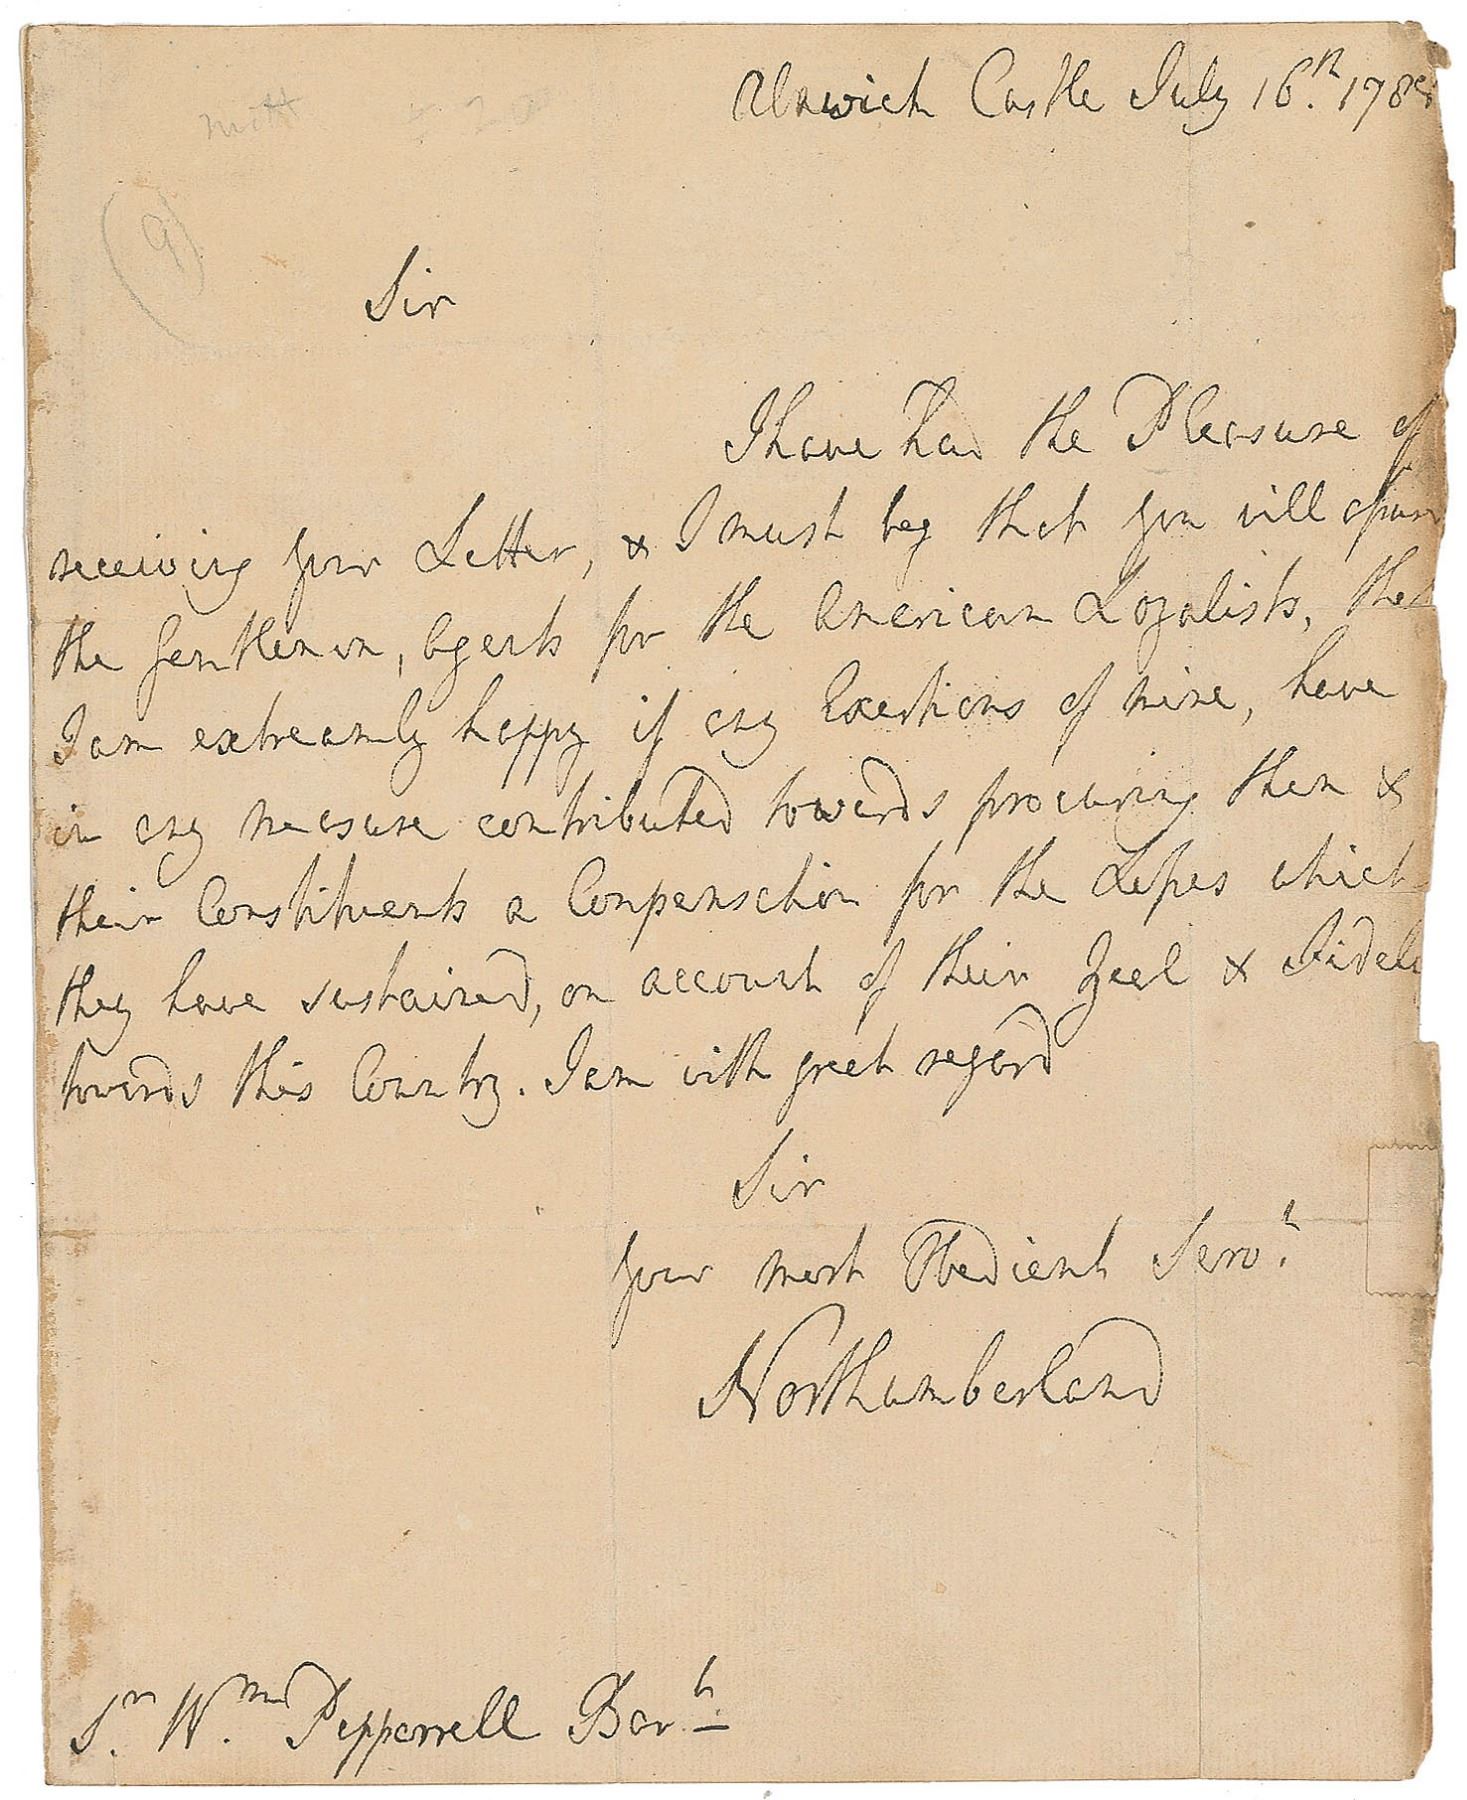 Alnwich Castle July 16.th 1788
(9)
Sir
I have had the Pleasure of
receiving your Letter, & I must beg that you will assure
the Gentlemen, Agents for the American Loyalists, that
I am extreamly happy if any Exertions of mine, have
in any measure contributed towards procuring them &
their Constituents a Compensation for the Losses which
they have sustained, on account of their Zeal & Fideli
towards this Country. I am with great regard
Sir
your most Obedient Serv.t
Northumberland
S.r W.m Pepperrell Bar.t